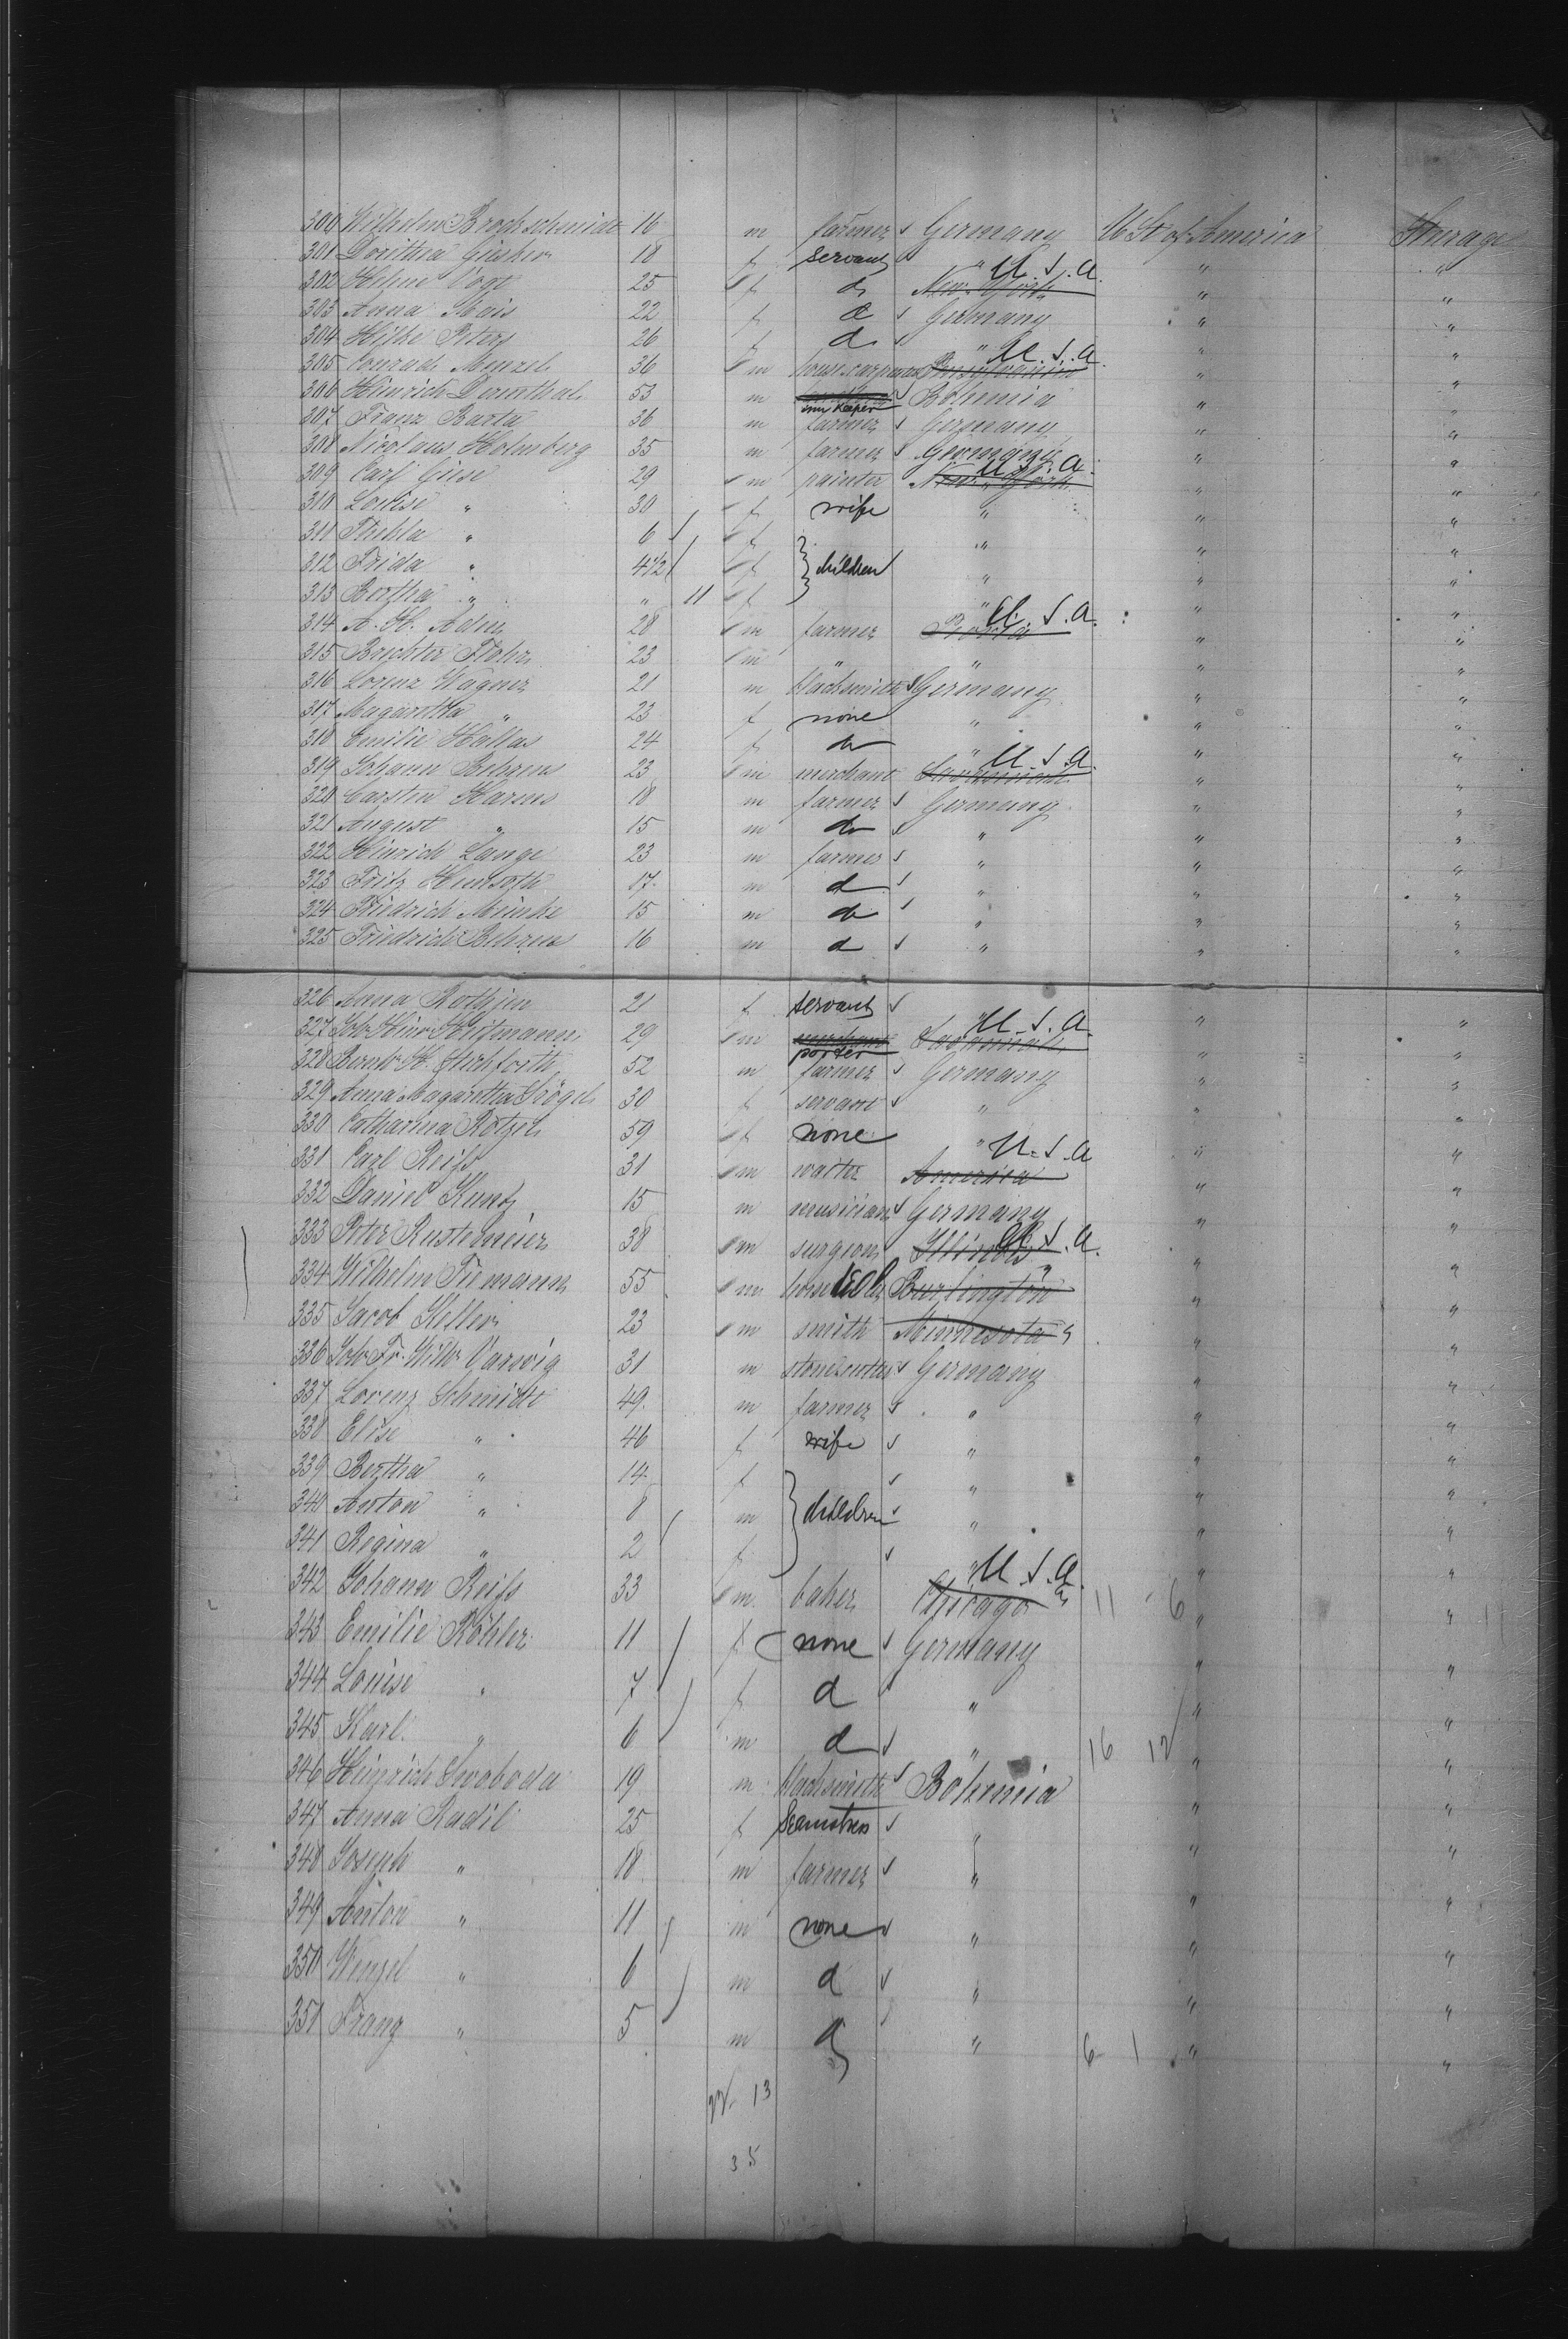 300 Wilhelm Brockschmidt 16 m farmer Germany U St of America Steerage
301 Dorithea 18 f servant " " "
302 Helene Vogt 25 f d New York U.S.A. " "
303 Anna Mais 22 f d Germany " "
304 Peters 26 f d " " "
305 Conrad Menzel 36 m house carpenter U.S.A. " "
306 Heinrich 53 m inn keeper Bohemia " "
307 Franz Barta 36 m farmer Germany " "
308 Nicolaus Holmberg 35 m farmer Germany " "
309 Carl Giese 29 m painter New York U.S.A. " "
310 Louise " 30 f wife " " "
311 Thekla " 6 f " " "
312 Frida " 4 1/2 f children " " "
313 Bertha " " 11 f " " "
314 A. H. 28 m farmer Peoria U.S.A. " "
315 23 m " " " "
316 Lorenz Wagner 21 m blacksmith Germany " "
317 Magaretha " 23 f none " " "
318 Emilie Hallas 24 f do " " "
319 Johann Behrens 23 m merchant Savannah U.S.A. " "
320 Carsten Harms 18 m farmer Germany " "
321 August " 15 m do " " "
322 Hinrich Lange 23 m farmer " " "
323 Fritz 17 m d " " "
324 Friedrich Meinke 15 m do " " "
325 Friedrich Behrens 16 m d " " "
326 Anna Rothjen 21 f servant " " "
327 Joh. Hinr. 29 m merchant porter Savannah U.S.A. " "
328 52 m farmer Germany " "
329 Anna Magaretha 30 f servant " " "
330 Catharina 59 f none " " "
331 Carl Reifs 31 m waiter America U.S.A " "
332 Daniel Kuntz 15 m musician Germany " "
333 Peter Rustemeier 38 m surgeon Illinois U.S.A. " "
334 Wilhelm Tiemann 55 m Burlington " " "
335 Jacob Keller 23 m smith Minnesota " " "
336 Joh. Fr. Wilh. 31 m stonecutter Germany " "
337 Lorenz Schmidt 49 m farmer " " "
338 Elise " 46 f wife " " "
339 Bertha " 14 f " " "
340 Anton " 8 m children " " "
341 Regina " 2 f " " "
342 Johann Reifs 33 m baker Chicago U.S.A. 11 6 " "
343 Emilie Köhler 11 f none Germany " "
344 Louise " 7 f d " " "
345 Karl " 6 m d " 16 12 " "
346 Heinrich Swoboda 19 m blacksmith Bohemia " "
347 Anna Radil 25 f Seamstress " " "
348 Joseph " 18 m farmer " " "
349 Anton " 11 m none " " "
350 Wenzel " 6 m d " " "
351 Franz " 5 m d " 6 1 " "
22 13
35